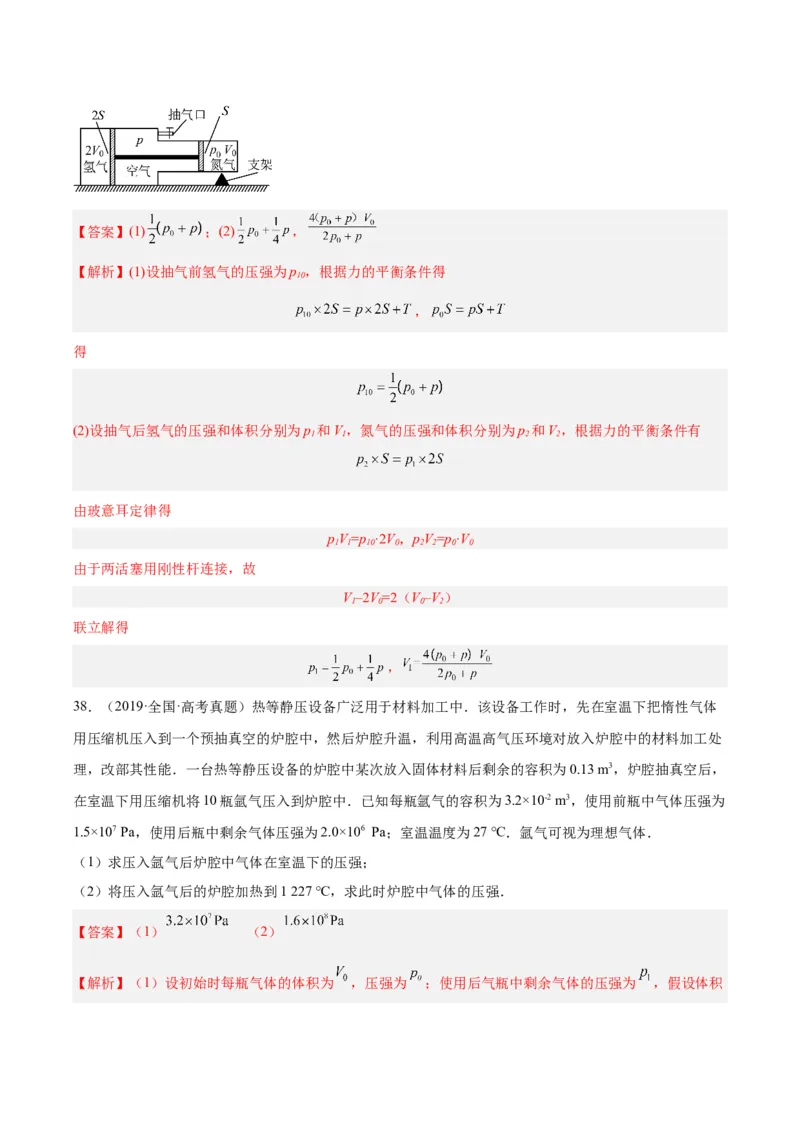 2S 抽气口 S
p
2V₀ p₀ V₀
氢气 空气 氮气 支架
【答案】(1) 1/2(p₀+p)；(2) 1/2 p₀+1/4 p，4(p₀+p)V₀/(2p₀+p)
【解析】(1)设抽气前氢气的压强为p₁₀，根据力的平衡条件得
p₁₀×2S=p×2S+T，p₀S=pS+T
得
p₁₀=1/2(p₀+p)
(2)设抽气后氢气的压强和体积分别为p₁和V₁，氮气的压强和体积分别为p₂和V₂，根据力的平衡条件有
p₂×S=p₁×2S
由玻意耳定律得
p₁V₁=p₁₀·2V₀，p₂V₂=p₀·V₀
由于两活塞用刚性杆连接，故
V₁–2V₀=2（V₀–V₂）
联立解得
p₁=1/2 p₀+1/4 p，V₁=4(p₀+p)V₀/(2p₀+p)
38．（2019·全国·高考真题）热等静压设备广泛用于材料加工中．该设备工作时，先在室温下把惰性气体
用压缩机压入到一个预抽真空的炉腔中，然后炉腔升温，利用高温高气压环境对放入炉腔中的材料加工处
理，改部其性能．一台热等静压设备的炉腔中某次放入固体材料后剩余的容积为0.13 m³，炉腔抽真空后，
在室温下用压缩机将10瓶氩气压入到炉腔中．已知每瓶氩气的容积为3.2×10⁻² m³，使用前瓶中气体压强为
1.5×10⁷ Pa，使用后瓶中剩余气体压强为2.0×10⁶ Pa；室温温度为27 ℃．氩气可视为理想气体．
（1）求压入氩气后炉腔中气体在室温下的压强；
（2）将压入氩气后的炉腔加热到1 227 ℃，求此时炉腔中气体的压强．
【答案】（1）3.2×10⁷ Pa （2）1.6×10⁸ Pa
【解析】（1）设初始时每瓶气体的体积为V₀，压强为p₀；使用后气瓶中剩余气体的压强为p₁，假设体积